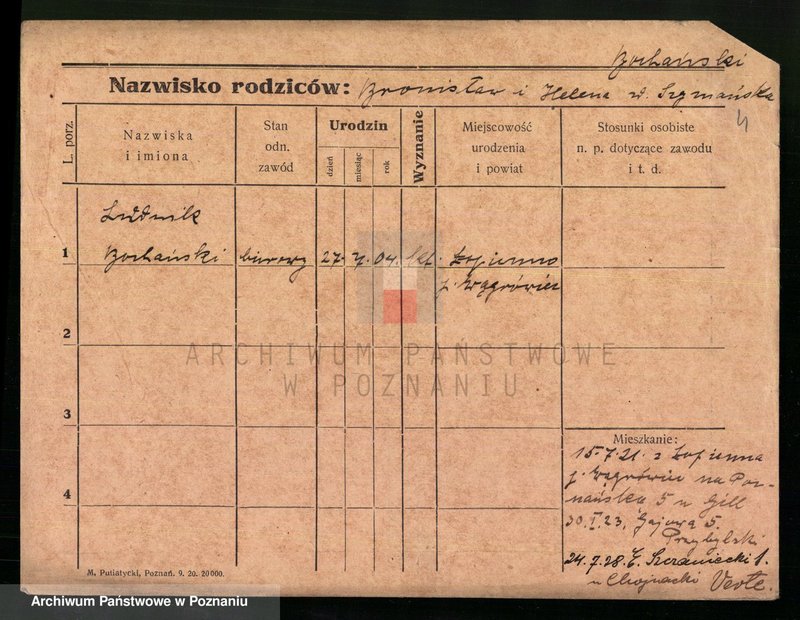 Bochański
Nazwisko rodziców: Bronisław i Helena d. Szymańska
4
L. porz.
Nazwiska
i imiona
Stan
odn.
zawód
Urodzin
dzień
miesiąc
rok
Wyznanie
Miejscowość
urodzenia
i powiat
Stosunki osobiste
n. p. dotyczące zawodu
i t. d.
Ludwik
1 Bochański biurowy 27. 7. 04. kat. Łopienno
p. Wągrówiec
2
ARCHIWUM PAŃSTWOWE
W POZNANIU
3
Mieszkanie:
15.7.21. z Łopienna
p. Wągrówiec na Poz-
nańska 5 u Gill
30.I.23. Gajowa 5.
Przybylski
4
24.7.28. E. Sczaniecki 1.
u Chojnacki
M. Putiatycki, Poznań. 9. 20. 20000.
Archiwum Państwowe w Poznaniu